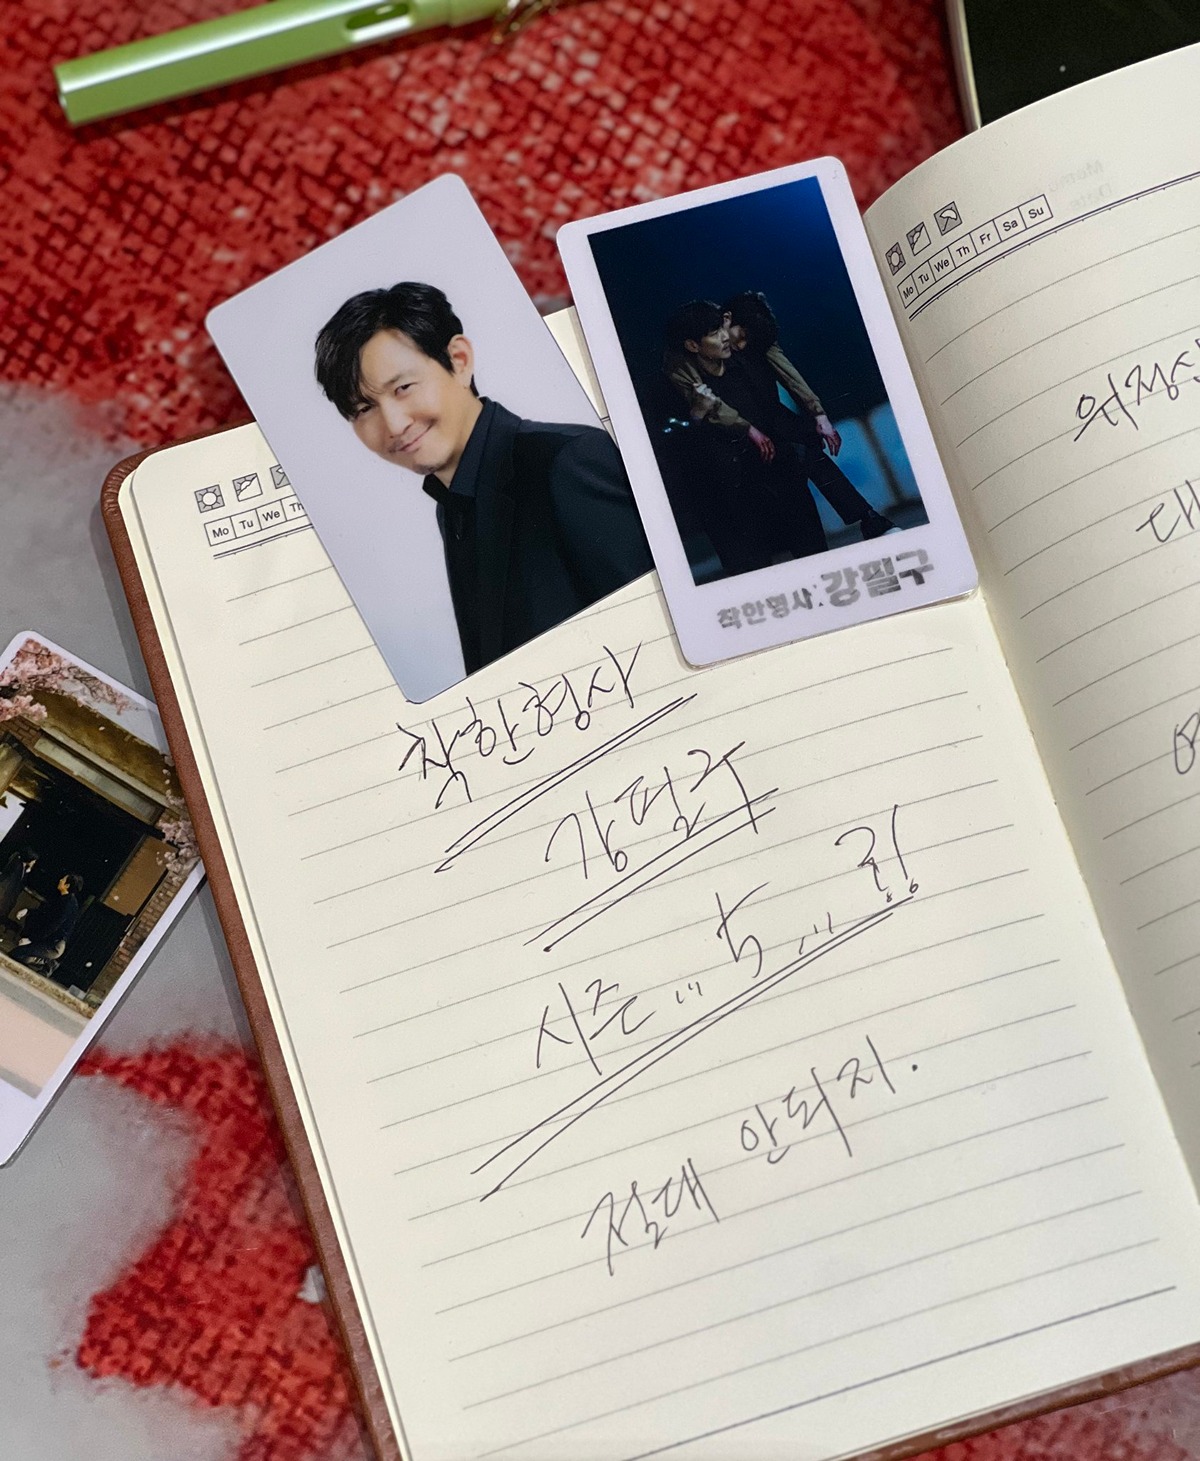 Mo Tu We Th
착한형사:강필구
착한형사
강필구
시즌...5...킹
절대 안되지.
Mo Tu We Th Fr Sa Su
위정신
대